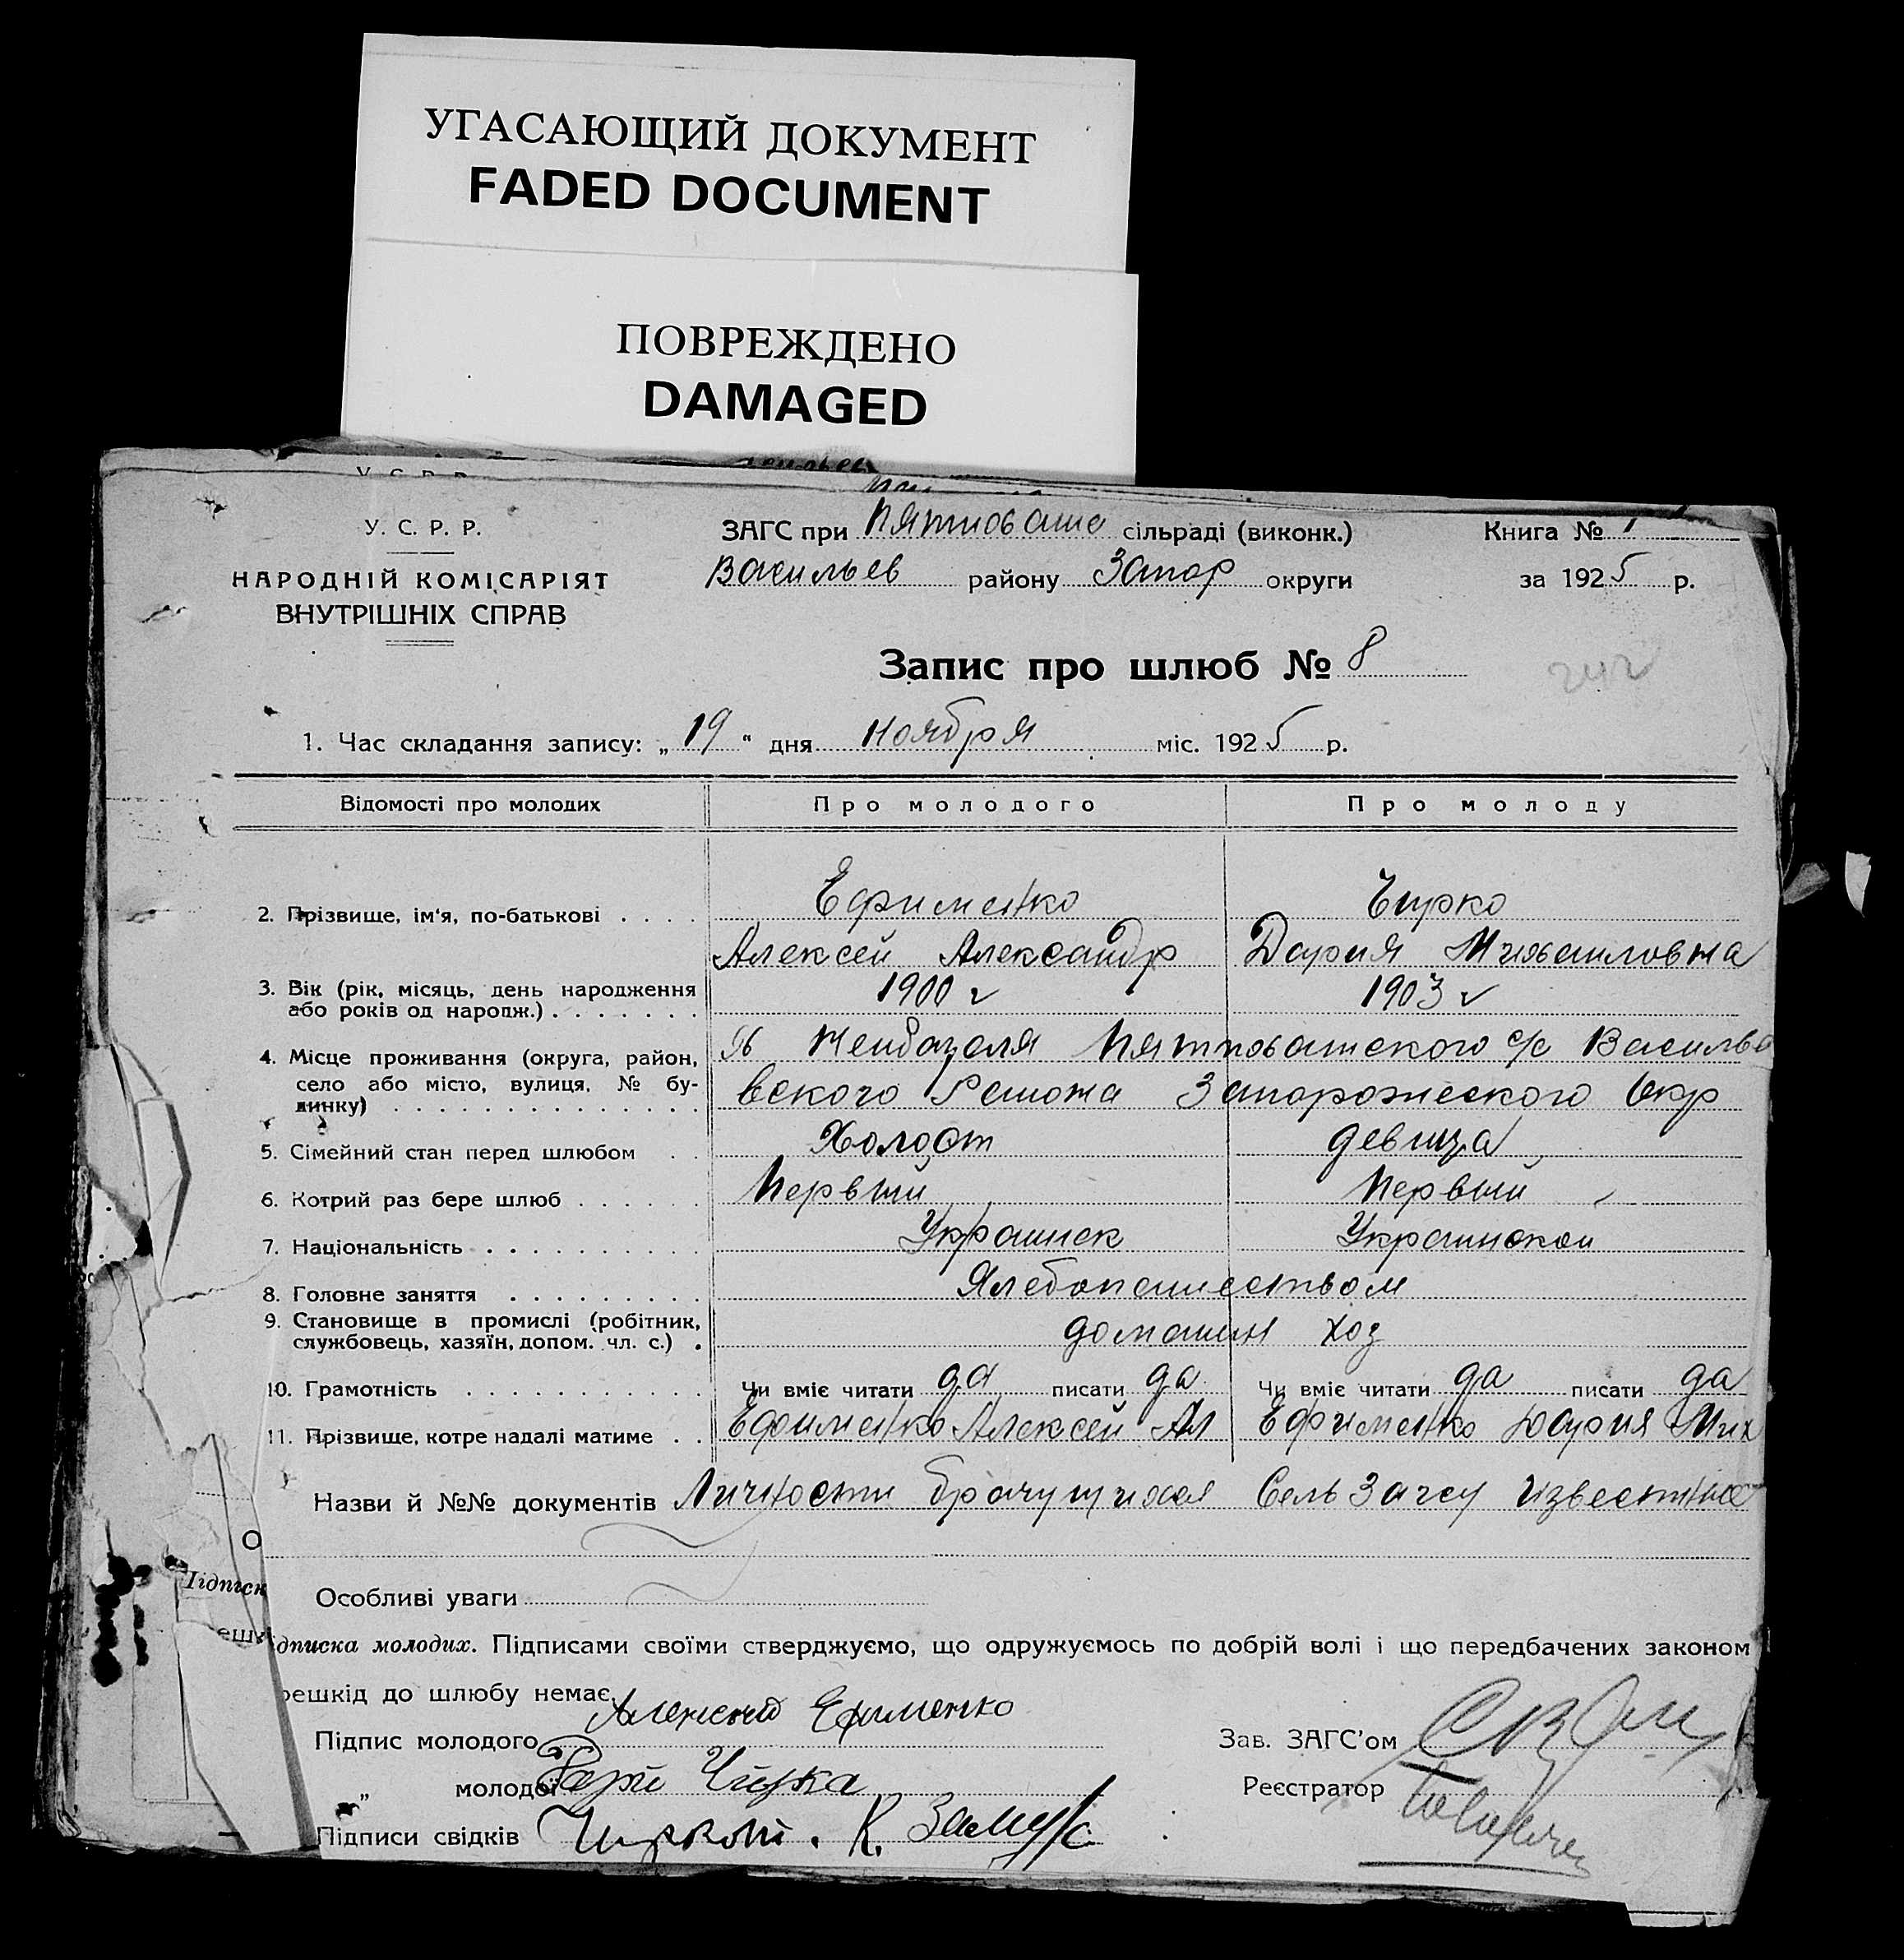 УГАСАЮЩИЙ ДОКУМЕНТ
FADED DOCUMENT
ПОВРЕЖДЕНО
DAMAGED
У. С. Р. Р.
НАРОДНІЙ КОМІСАРІЯТ
ВНУТРІШНІХ СПРАВ
ЗАГС при сільраді (виконк.)
Васильев району Запор округи
Книга № 1
за 1925 р.
Запис про шлюб № 8
242
1. Час складання запису: „ 19 “ дня ноября міс. 1925 р.
Відомості про молодих Про молодого Про молоду
2. Прізвище, ім'я, по-батькові . . . . Ефименко Чирко
Алексей Александр Дария Михаиловна
3. Вік (рік, місяць, день народження
або років од народж.) . . . . . . . 1900 г 1903 г
4. Місце проживання (округа, район,
село або місто, вулиця, № бу-
динку) . . . . . . . . . . . . . . .
с/с Василье
вского Раиона Запорожского Окр
5. Сімейний стан перед шлюбом . . Холост девица
6. Котрий раз бере шлюб . . . . . . Первый Первый
7. Національність . . . . . . . . . . Украинск Украинской
8. Головне заняття . . . . . . . . . Хлебопашеством
9. Становище в промислі (робітник,
службовець, хазяїн, допом. чл. с.) . домашн хоз
10. Грамотність . . . . . . . . . . . Чи вміє читати да писати да Чи вміє читати да писати да
11. Прізвище, котре надалі матиме . . Ефименко Алексей Ал Ефименко Дария Мих
Назви й №№ документів Личности брачущихся СельЗагсу известные
О
Особливі уваги
Підписк
ешк
дписка молодих. Підписами своїми стверджуємо, що одружуємось по добрій волі і що передбачених законом
решкід до шлюбу немає.
Підпис молодого Алексей Ефименко
„ молодої Чирка
Підписи свідків К.
Зав. ЗАГС'ом
Реєстратор